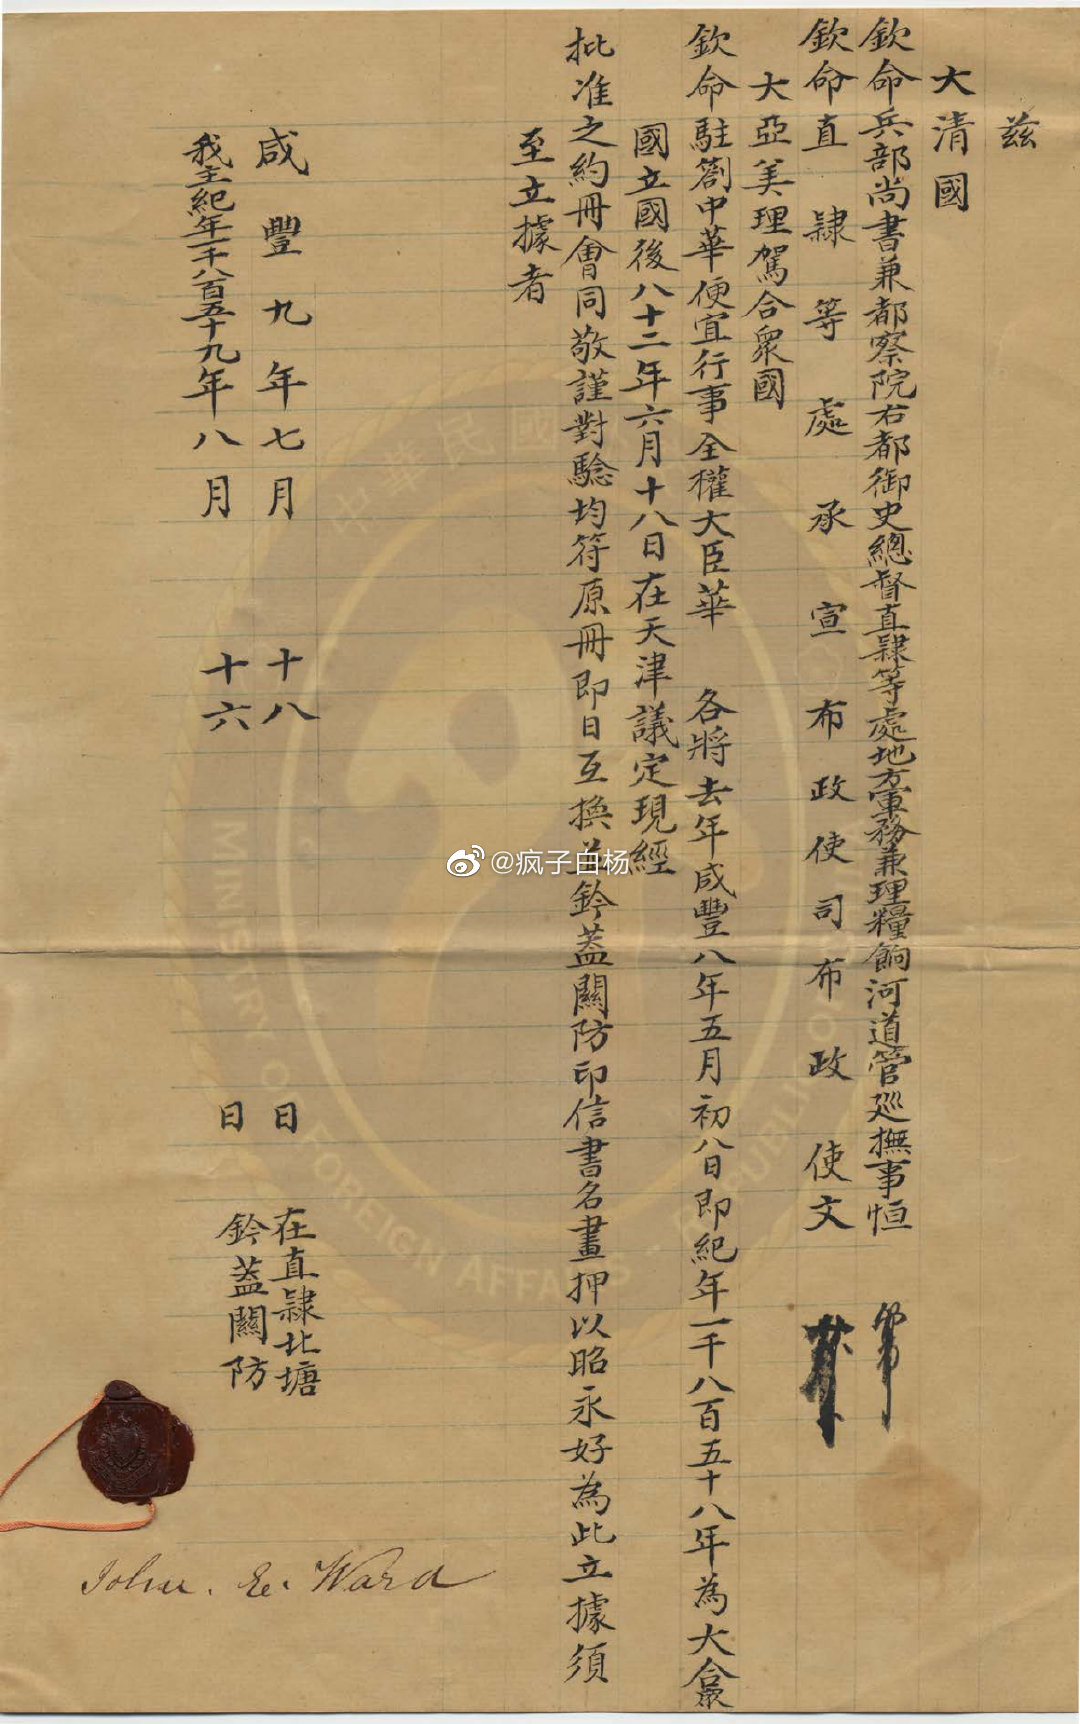 茲
大清國
欽命兵部尚書兼都察院右都御史總督直隸等處地方軍務兼理糧餉河道管巡撫事恒
欽命直隸等處承宣布政使司布政使文
大亞美理駕合衆國
欽命駐劄中華便宜行事全權大臣華 各將去年咸豐八年五月初八日即紀年一千八百五十八年為大合眾
國立國後八十二年六月十八日在天津議定現經
批准之約冊會同敬謹對驗均符原冊即日互換並鈐蓋關防印信書名畫押以昭永好為此立據須
至立據者
咸豐九年七月 十八 日 在直隸北塘
我主紀年一千八百五十九年八月 十六 日 鈐蓋關防
John. E. Ward
中華民國
MINISTRY OF FOREIGN AFFAIRS
@疯子白杨